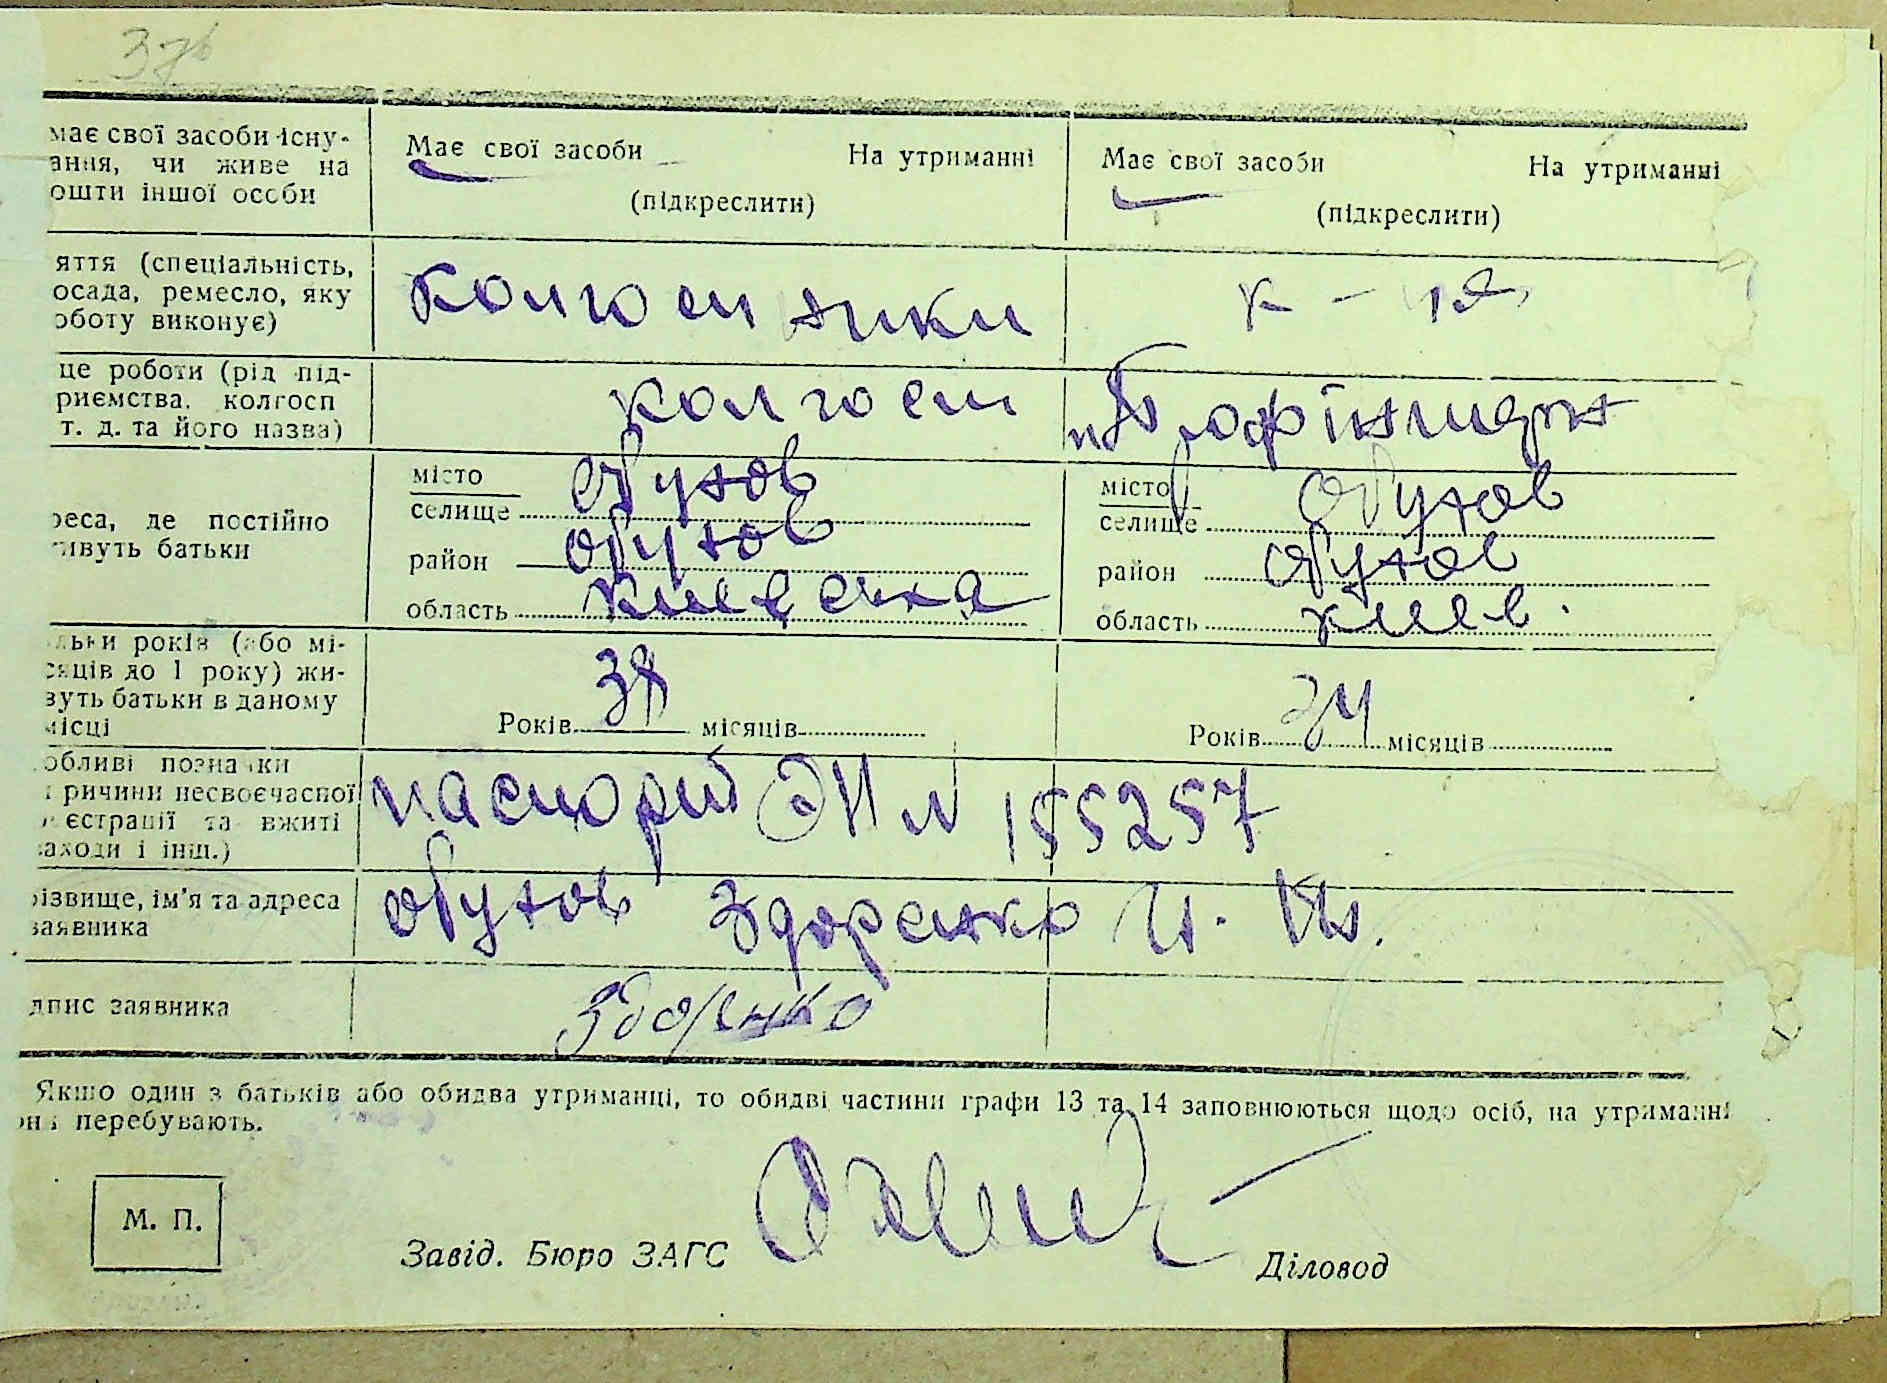 37
має свої засоби існу-
ання, чи живе на
ошти іншої особи
Має свої засоби На утриманні
(підкреслити)
Має свої засоби На утриманні
(підкреслити)
яття (спеціальність,
осада, ремесло, яку
оботу виконує)
к - ця
це роботи (рід під-
риємства, колгосп
т. д. та його назва)
колгосп
"Профінтерн
реса, де постійно
ивуть батьки
місто
селище Обухов
район Обухов
область Киевська
місто
селище Обухов
район Обухов
область Киев.
льки років (або мі-
сяців до 1 року) жи-
вуть батьки в даному
місці
Років 38 місяців
Років 34 місяців
обливі позначки
ричини несвоєчасної
єстрації та вжиті
аходи і інш.)
паспорт № 155257
різвище, ім'я та адреса
заявника
Обухов Здоренко И.
дпис заявника
Здоренко
Якшо один з батьків або обидва утриманці, то обидві частини графи 13 та 14 заповнюються щодо осіб, на утриманні
они перебувають.
М. П.
Завід. Бюро ЗАГС
Діловод